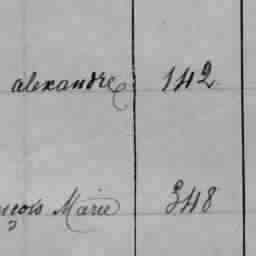 alexandre 142
nçois Marie 348